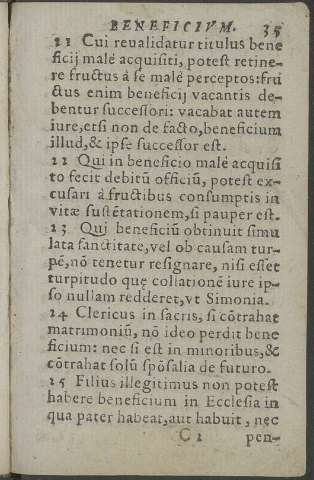 BENEFICIVM. 35
21 Cui reualidatur titulus bene
ficij malè acquisiti, potest retine-
re fructus à se malè perceptos:fru
ctus enim beneficij vacantis de-
bentur successori: vacabat autem
iure,etsi non de facto,beneficium
illud,& ipse successor est.
22 Qui in beneficio malè acquisi
to fecit debitũ officiũ, potest ex-
cusari à fructibus consumptis in
vitæ sustẽtationem,si pauper est.
23 Qui beneficiũ obtinuit simu
lata sanctitate,vel ob causam tur-
pẽ,nõ tenetur resignare, nisi esset
turpitudo quę collationẽ iure ip-
so nullam redderet,vt Simonia.
24 Clericus in sacris, si cõtrahat
matrimoniũ, nõ ideo perdit bene
ficium: nec si est in minoribus,&
cõtrahat solũ spõsalia de futuro.
25 Filius illegitimus non potest
habere beneficium in Ecclesia in
qua pater habeat,aut habuit, nec
C 2 pen-